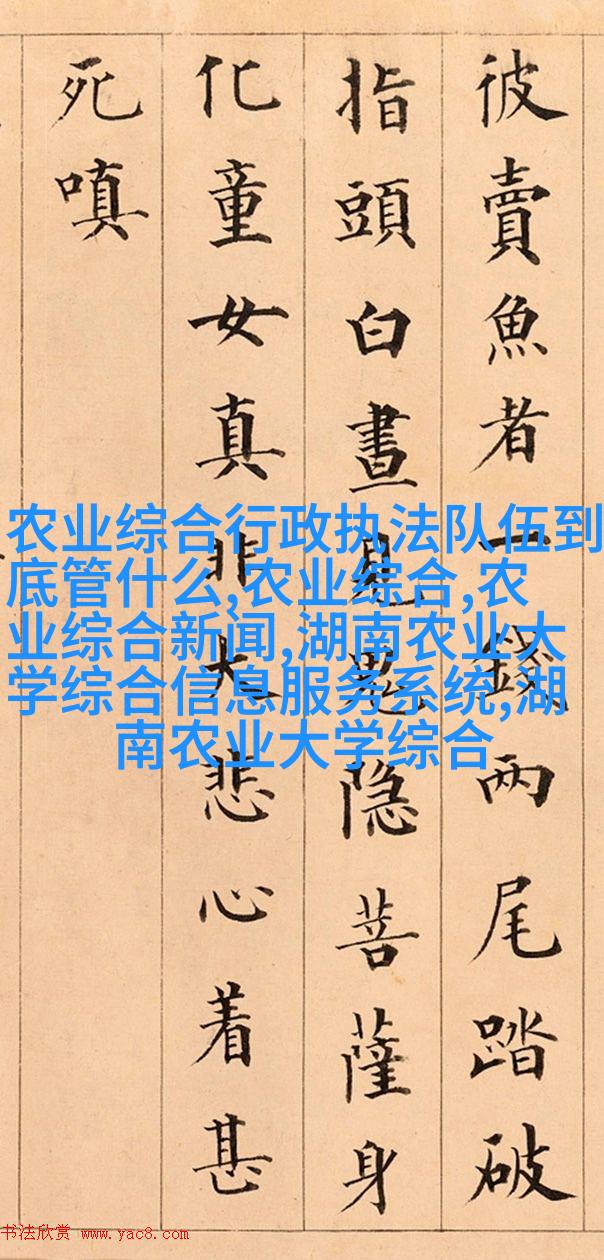 彼賣魚者一錢兩尾踏破
指頭白晝見鬼隐菩薩身
化童女真非大悲心着甚
死嗔
农业综合行政执法队伍到
底管什么,农业综合,农
业综合新闻,湖南农业大
学综合信息服务系统,湖
南农业大学综合
书法欣赏 www.yac8.com